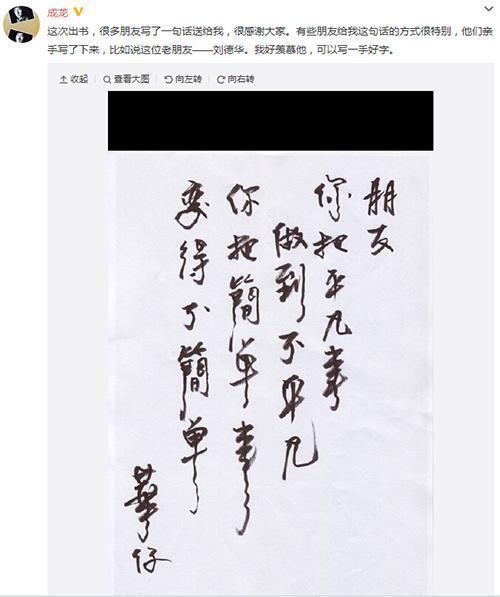 成龙
这次出书，很多朋友写了一句话送给我，很感谢大家。有些朋友给我这句话的方式很特别，他们亲
手写了下来，比如说这位老朋友——刘德华。我好羡慕他，可以写一手好字。
收起 查看大图 向左转 向右转
朋友
你把平凡事
做到不平凡
你把簡單事
变得不簡單
華仔